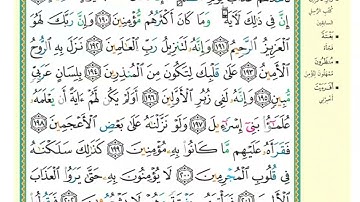 إِنَّ فِي ذَٰلِكَ لَآيَةً ۖ وَمَا كَانَ أَكْثَرُهُم مُّؤْمِنِينَ ۝١٩٠ وَإِنَّ رَبَّكَ لَهُوَ
الْعَزِيزُ الرَّحِيمُ ۝١٩١ وَإِنَّهُ لَتَنزِيلُ رَبِّ الْعَالَمِينَ ۝١٩٢ نَزَلَ بِهِ الرُّوحُ
الْأَمِينُ ۝١٩٣ عَلَىٰ قَلْبِكَ لِتَكُونَ مِنَ الْمُنذِرِينَ ۝١٩٤ بِلِسَانٍ عَرَبِيٍّ
مُّبِينٍ ۝١٩٥ وَإِنَّهُ لَفِي زُبُرِ الْأَوَّلِينَ ۝١٩٦ أَوَلَمْ يَكُن لَّهُمْ ءَايَةً أَن يَعْلَمَهُ
عُلَمَٰٓؤُا بَنِيٓ إِسْرَٰٓءِيلَ ۝١٩٧ وَلَوْ نَزَّلْنَٰهُ عَلَىٰ بَعْضِ الْأَعْجَمِينَ ۝١٩٨
فَقَرَأَهُ عَلَيْهِم مَّا كَانُوا بِهِ مُؤْمِنِينَ ۝١٩٩ كَذَٰلِكَ سَلَكْنَٰهُ
فِي قُلُوبِ الْمُجْرِمِينَ ۝٢٠٠ لَا يُؤْمِنُونَ بِهِ حَتَّىٰ يَرَوُا الْعَذَابَ
بَغْتَةً
مُنظَرُونَ
أَفَرَأَيْتَ
أخبرني